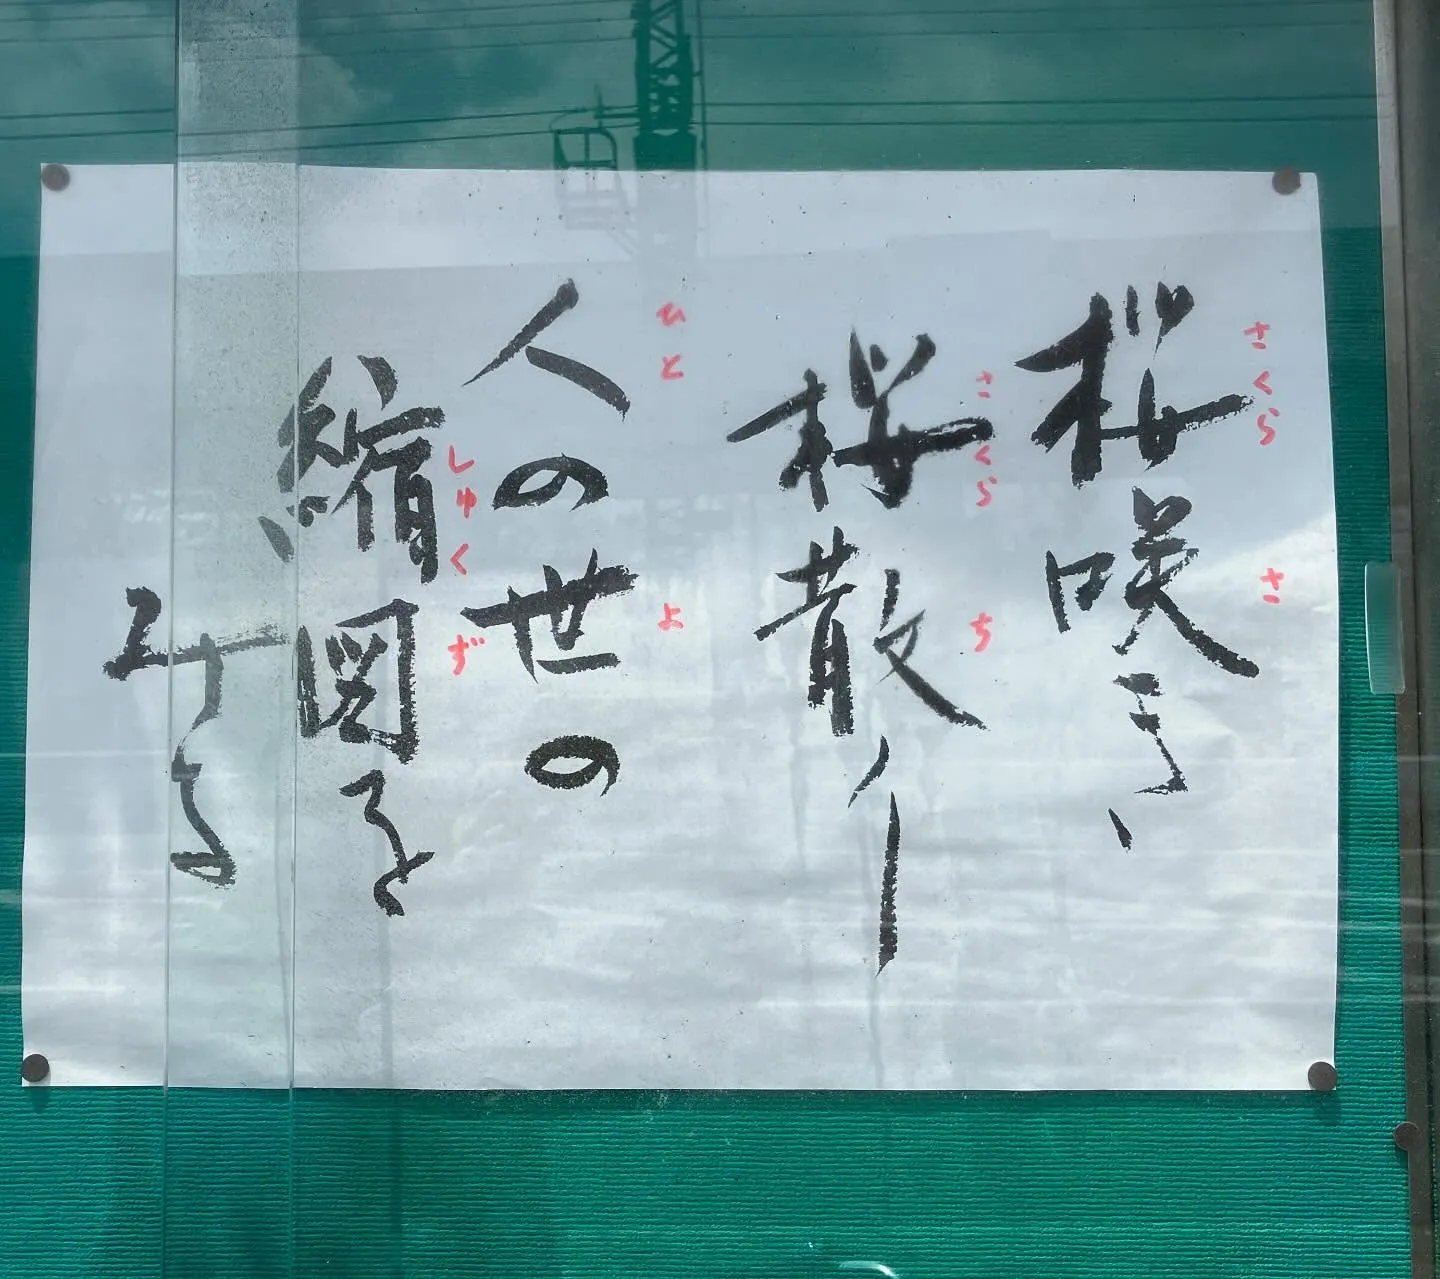 さくら さ
桜咲き、
さくら ち
桜散り
ひと よ
人の世の
しゅくず
縮図を
みる